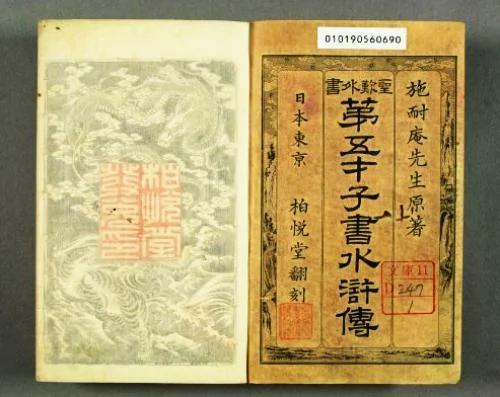 010190560690
聖歎外書
施耐庵先生原著
上
第五才子書水滸傳
日本東京 柏悦堂翻刻
文庫11
D
247
1
柏悦堂